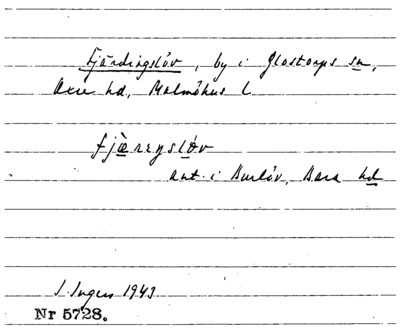 Fjärdingslöv, by i Glostorps sn,
Oxie hd, Malmöhus l
fjæreŋsløv
ant. i Burlöv, Bara hd
I. Ingers 1943
Nr 5728.